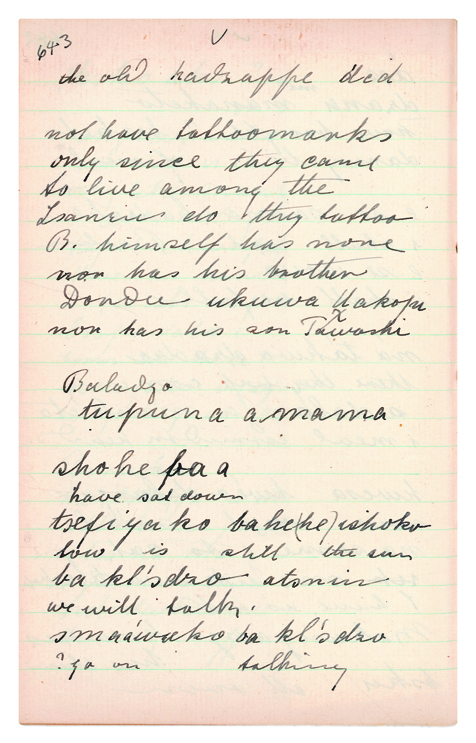 643
V
the old hadzappe did
not have tattoomarks
only since they came
to live among the
Isanzu do they tattoo
B. himself has none
nor has his brother
Dondu ukuwa
nor has his son
Baladzo
tupuna a mama
shohe baa
have sat down
tsefiyako bahe(he)ishoko
low is still the sun
ba kl'sdzo atsnin
we will talk.
ba kl'sdzo
? go on talking